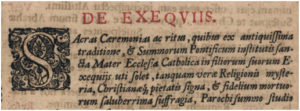 DE EXEQVIIS.
Sacras Ceremonias ac ritus, quibus ex antiquissima
traditione, & Summorum Pontificum institutis san-
cta Mater Ecclesia Catholica in filiorum suorum E-
xequijs uti solet, tanquam vera Religionis myste-
ria, Christianæq; pietatis signa, & fidelium mortuo-
rum saluberrima suffragia, Parochi summo studio